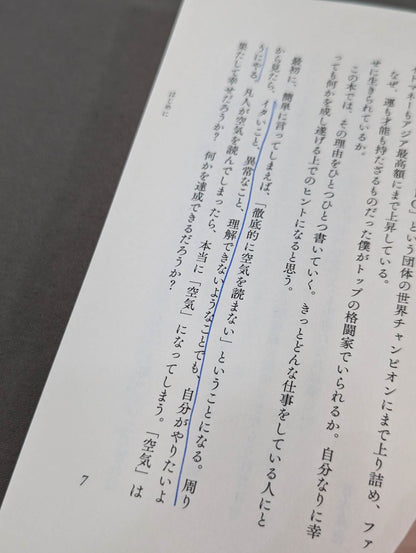 という団体の世界チャンピオンにまで上り詰め、ファ
マネーもアジア最高額にまで上昇している。
なぜ、運も才能も持たざるものだった僕がトップの格闘家でいられるか。自分なりに幸
せに生きられているか。
この本では、その理由をひとつひとつ書いていく。きっとどんな仕事をしている人にと
っても何かを成し遂げる上でのヒントになると思う。
最初に、簡単に言ってしまえば、「徹底的に空気を読まない」ということになる。周り
から見たら、イタいこと、異常なこと、理解できないようなことでも、自分がやりたいよ
うにやる。凡人が空気を読んでしまったら、本当に「空気」になってしまう。「空気」は
果たして幸せだろうか？　何かを達成できるだろうか？
はじめに
7